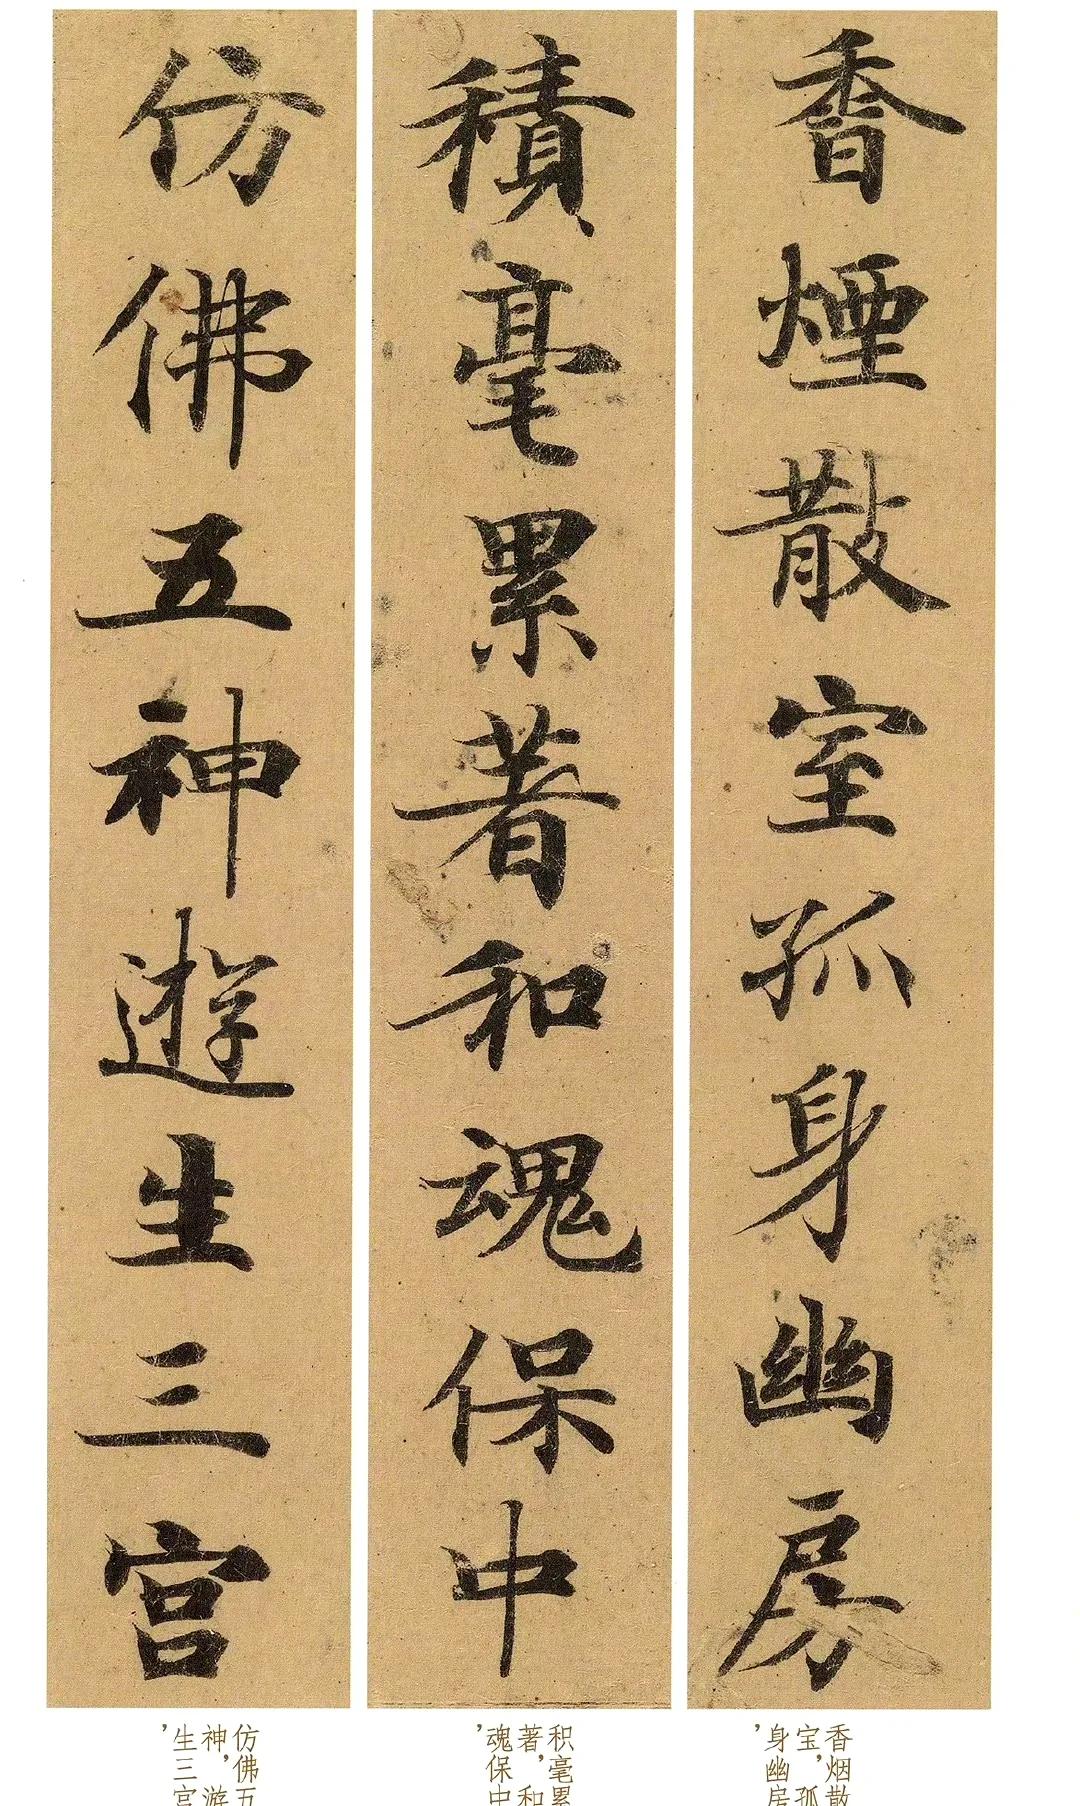 香煙散室孤身幽房
積毫累著和魂保中
仿佛五神遊生三宫
香烟散
宝，孤
身幽房
，
积毫累
著，和
魂保中
，
仿佛五
神，游
生三宫
，